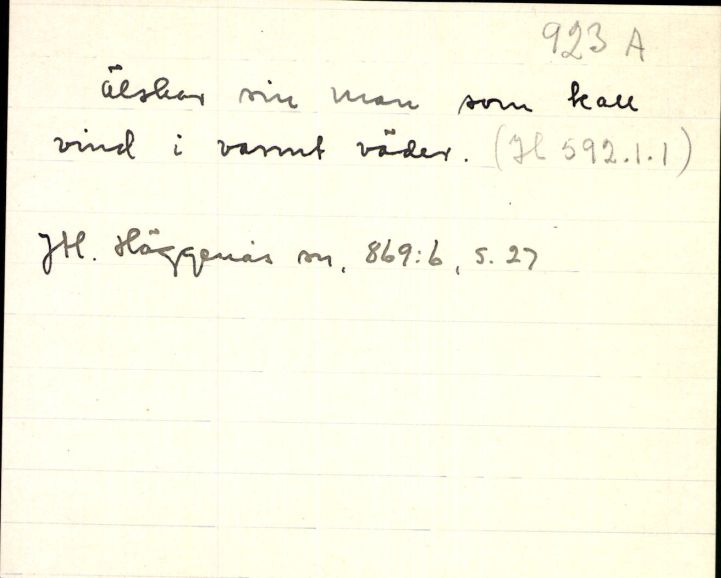 923 A
Älskar sin man som kall
vind i varmt väder. (JH 592.1.1)
JH. Häggenås sn, 869:6, s. 27